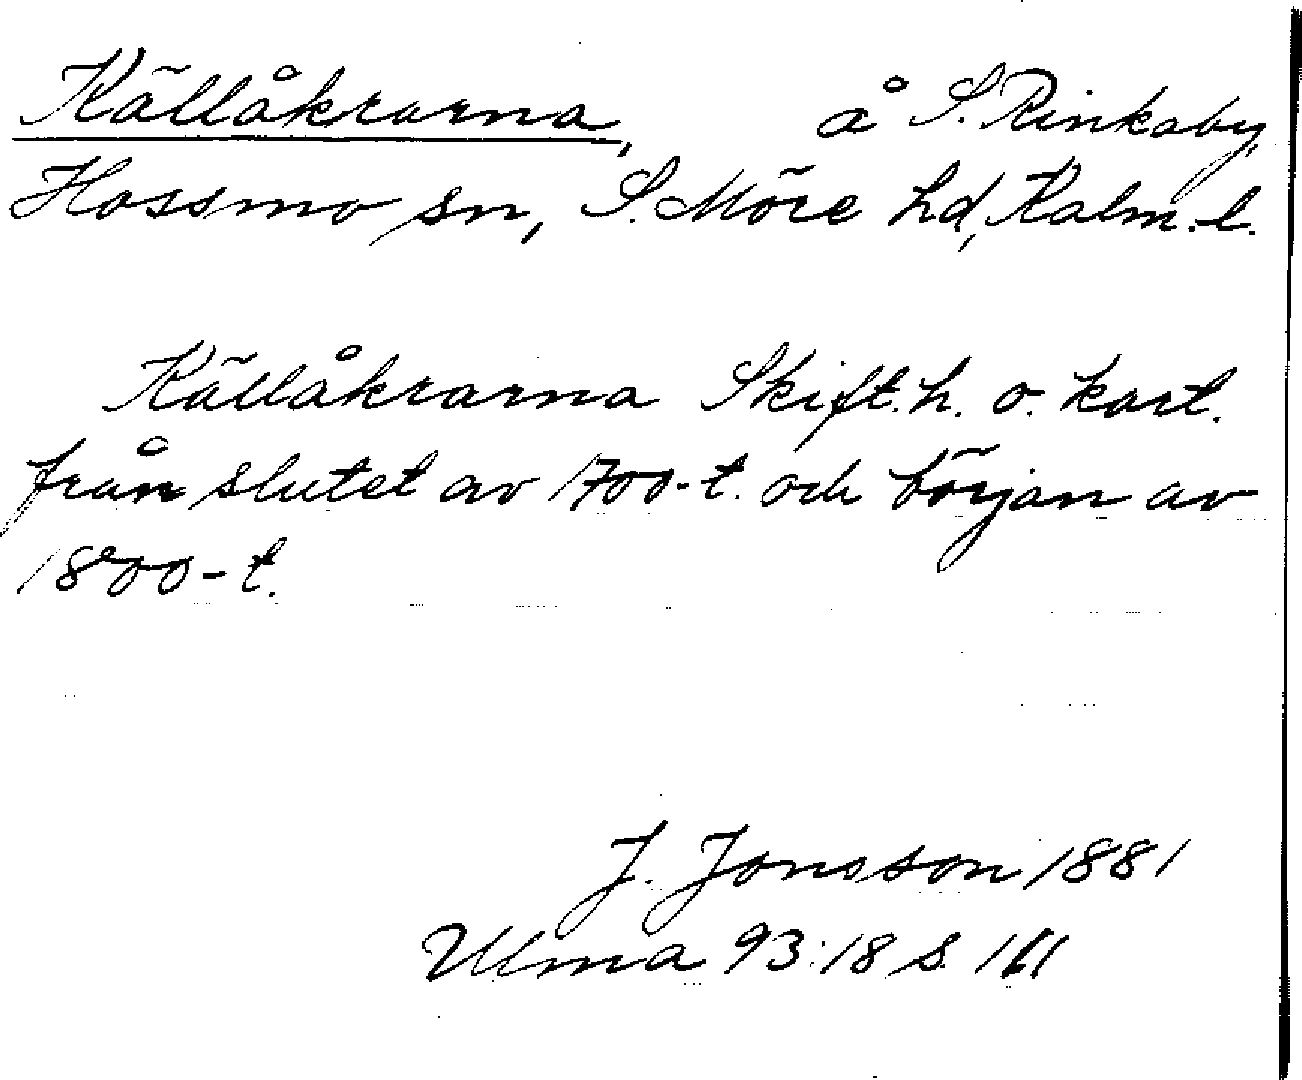 Källåkrarna, å S. Rinkaby,
Hossmo sn, S. Möre hd, Kalm. l.
Källåkrarna Skift.h. o. kart.
från slutet av 1700-t. och början av
1800-t.
J. Jonsson 1881
Ulma 93:18 s.